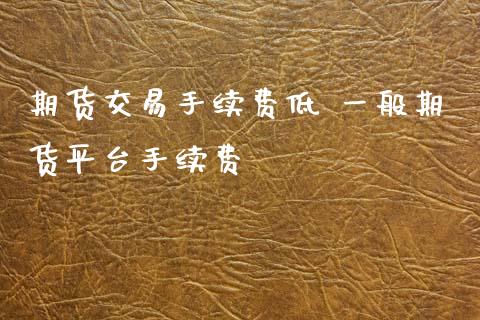 期货交易手续费低 一般期
货平台手续费